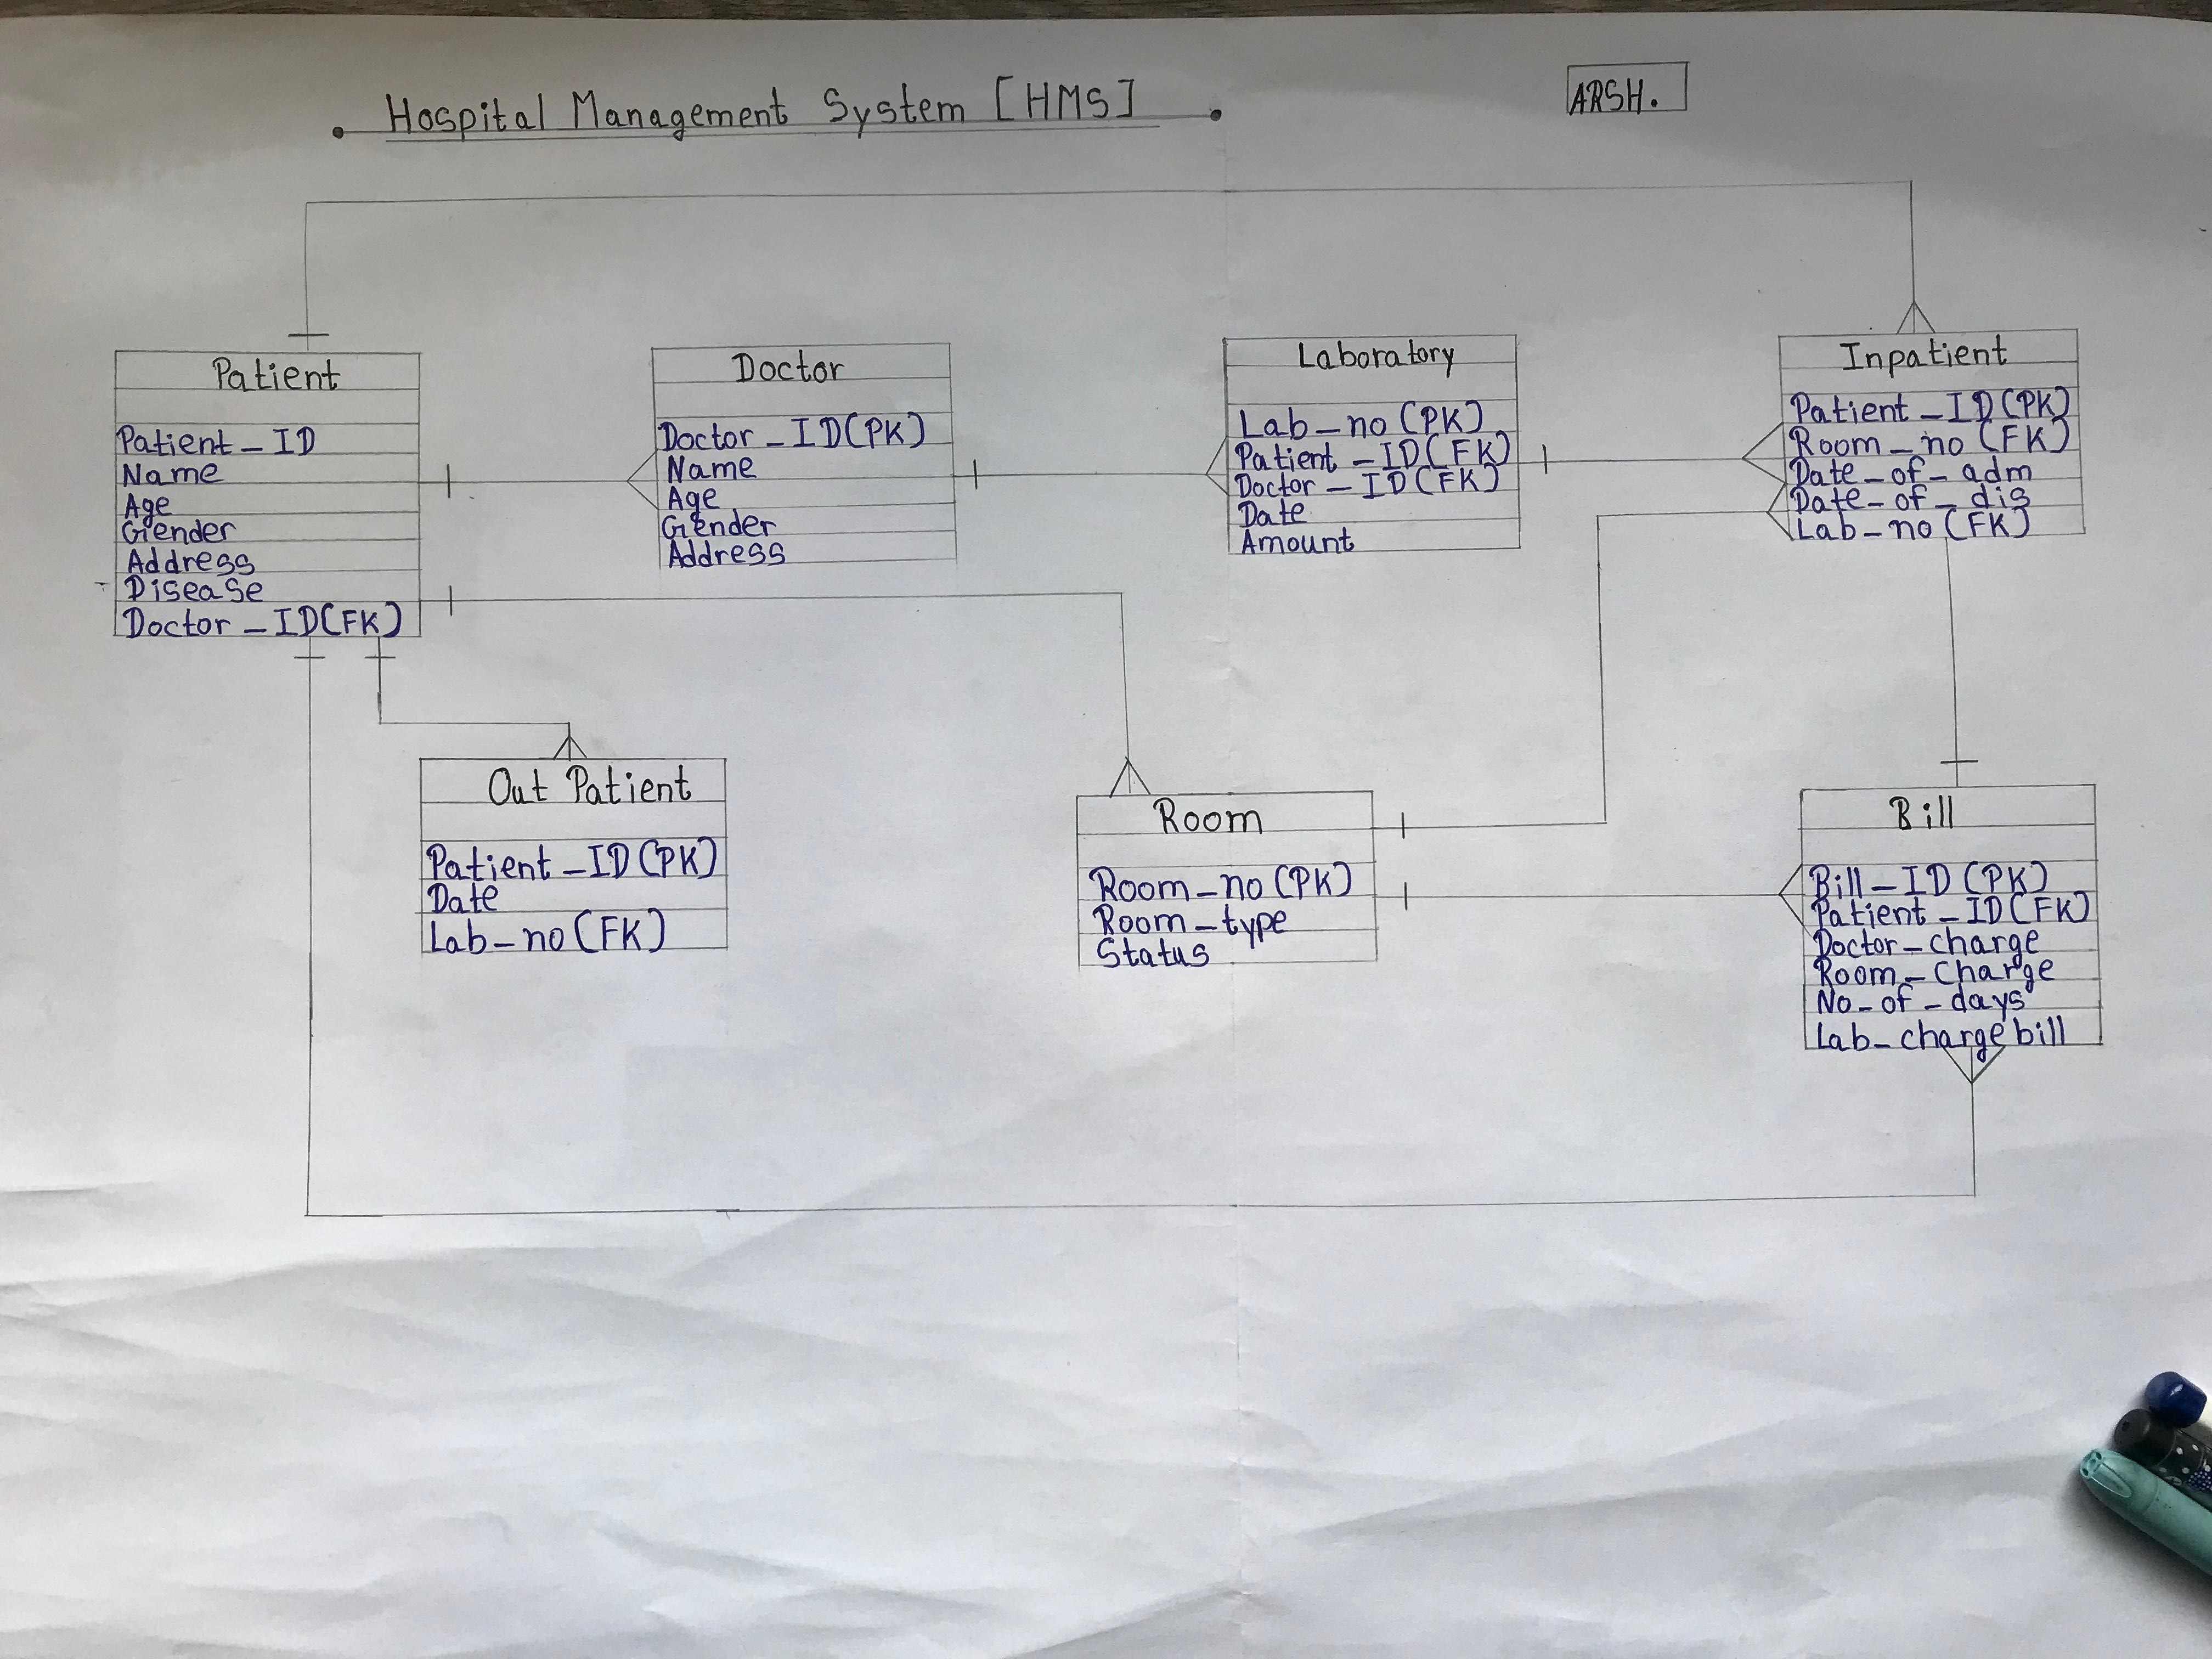 Hospital Management System [HMS]
ARSH.
Patient
Patient_ID
Name
Age
Gender
Address
Disease
Doctor_ID(FK)
Doctor
Doctor_ID(PK)
Name
Age
Gender
Address
Laboratory
Lab_no (PK)
Patient_ID(FK)
Doctor_ID(FK)
Date
Amount
Inpatient
Patient_ID(PK)
Room_no (FK)
Date_of_adm
Date_of_dis
Lab_no (FK)
Out Patient
Patient_ID(PK)
Date
Lab_no (FK)
Room
Room_no (PK)
Room_type
Status
Bill
Bill_ID (PK)
Patient_ID(FK)
Doctor_charge
Room_Charge
No_of_days
Lab_charge bill